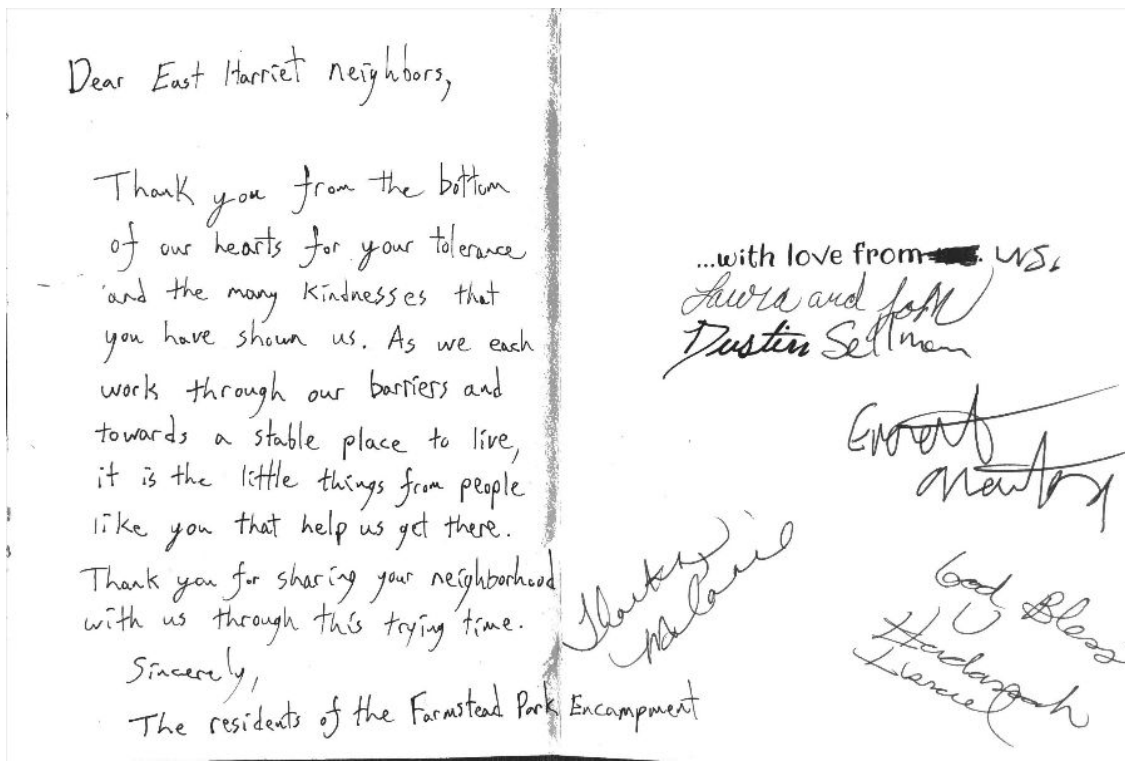 Dear East Harriet neighbors,
Thank you from the bottom
of our hearts for your tolerance
and the many kindnesses that
you have shown us. As we each
work through our barriers and
towards a stable place to live,
it is the little things from people
like you that help us get there.
Thank you for sharing your neighborhood
with us through this trying time.
Sincerely,
The residents of the Farmstead Park Encampment
...with love from us.
Laura and John
Dustin Sellman
Thanks
God Bless
U